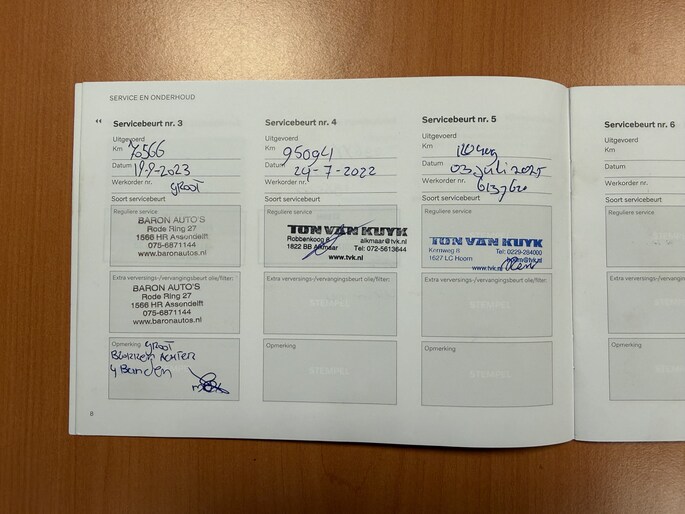 SERVICE EN ONDERHOUD
“
Servicebeurt nr. 3
Uitgevoerd
Km 70566
Datum 19-9-2023
Werkorder nr. groot
Soort servicebeurt
Reguliere service
BARON AUTO'S
Rode Ring 27
1566 HR Assendelft
075-6871144
www.baronautos.nl
Extra verversings-/vervangingsbeurt olie/filter:
BARON AUTO'S
Rode Ring 27
1566 HR Assendelft
075-6871144
www.baronautos.nl
Opmerking groot
Blokken Achter
4 Banden
Servicebeurt nr. 4
Uitgevoerd
Km 95094
Datum 24-7-2022
Werkorder nr.
Soort servicebeurt
Reguliere service
TON VAN KUYK
Robbenkoog 6 alkmaar@tvk.nl
1822 BB Alkmaar Tel: 072-5613644
www.tvk.nl
Extra verversings-/vervangingsbeurt olie/filter:
STEMPEL
Opmerking
STEMPEL
Servicebeurt nr. 5
Uitgevoerd
Km
Datum 03 juli 2025
Werkorder nr.
Soort servicebeurt
Reguliere service
TON VAN KUYK
Tel: 0229-284000
1627 LC Hoorn hoorn@tvk.nl
www.tvk.nl
Extra verversings-/vervangingsbeurt olie/filter:
STEMPEL
Opmerking
STEMPEL
Servicebeurt nr. 6
Uitgevoerd
Km
Datum
Werkorder nr.
Soort servicebeurt
Reguliere service
Extra verversings-/vervangingsbeurt
Opmerking
8